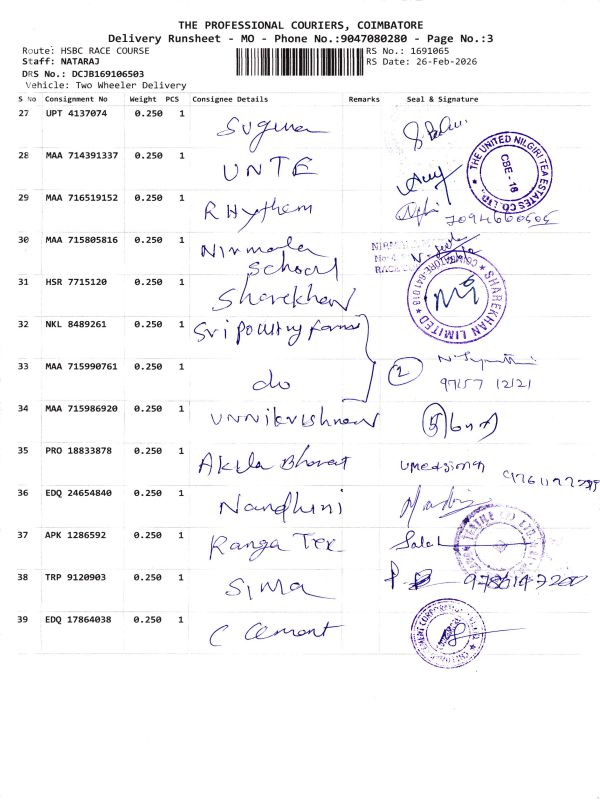 THE PROFESSIONAL COURIERS, COIMBATORE
Delivery Runsheet - MO - Phone No.:9047080280 - Page No.:3
Route: HSBC RACE COURSE RS No.: 1691065
Staff: NATARAJ RS Date: 26-Feb-2026
DRS No.: DCJB169106503
Vehicle: Two Wheeler Delivery
S No Consignment No Weight PCS Consignee Details Remarks Seal & Signature
27 UPT 4137074 0.250 1 Suguna
28 MAA 714391337 0.250 1 UNTE THE UNITED NILGIRI TEA ESTATES CO LTD. CBE - 18
29 MAA 716519152 0.250 1 RHythem
30 MAA 715805816 0.250 1 Nirmala
School
31 HSR 7715120 0.250 1 Sharekhan SHAREKHAN LIMITED COIMBATORE-641018
32 NKL 8489261 0.250 1 Sri poultry farms
33 MAA 715990761 0.250 1 do 2
97157 12121
34 MAA 715986920 0.250 1 UNNikrishnan
35 PRO 18833878 0.250 1 Akila Bharat
36 EDQ 24654840 0.250 1 Nandhini
37 APK 1286592 0.250 1 Ranga Tex
38 TRP 9120903 0.250 1 SIMA
39 EDQ 17864038 0.250 1 C Cement